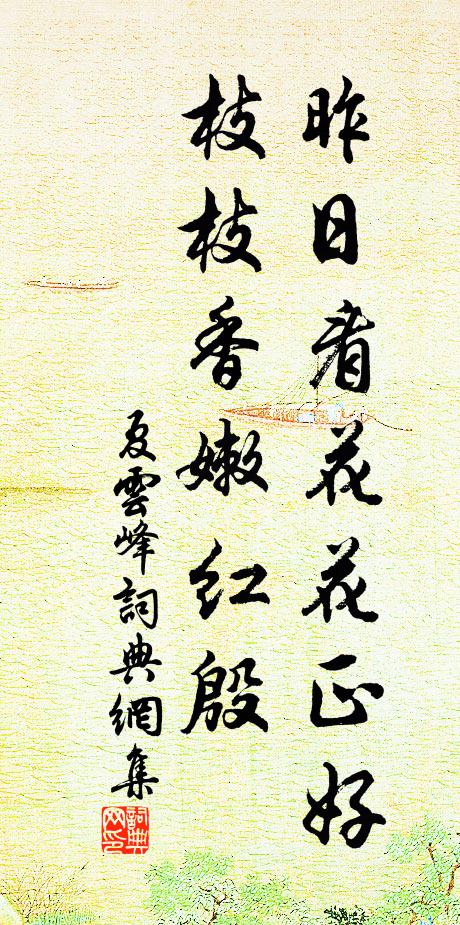 昨日看花花正好
枝枝香嫩红殷
夏雲峰詞典網集
詞典网印